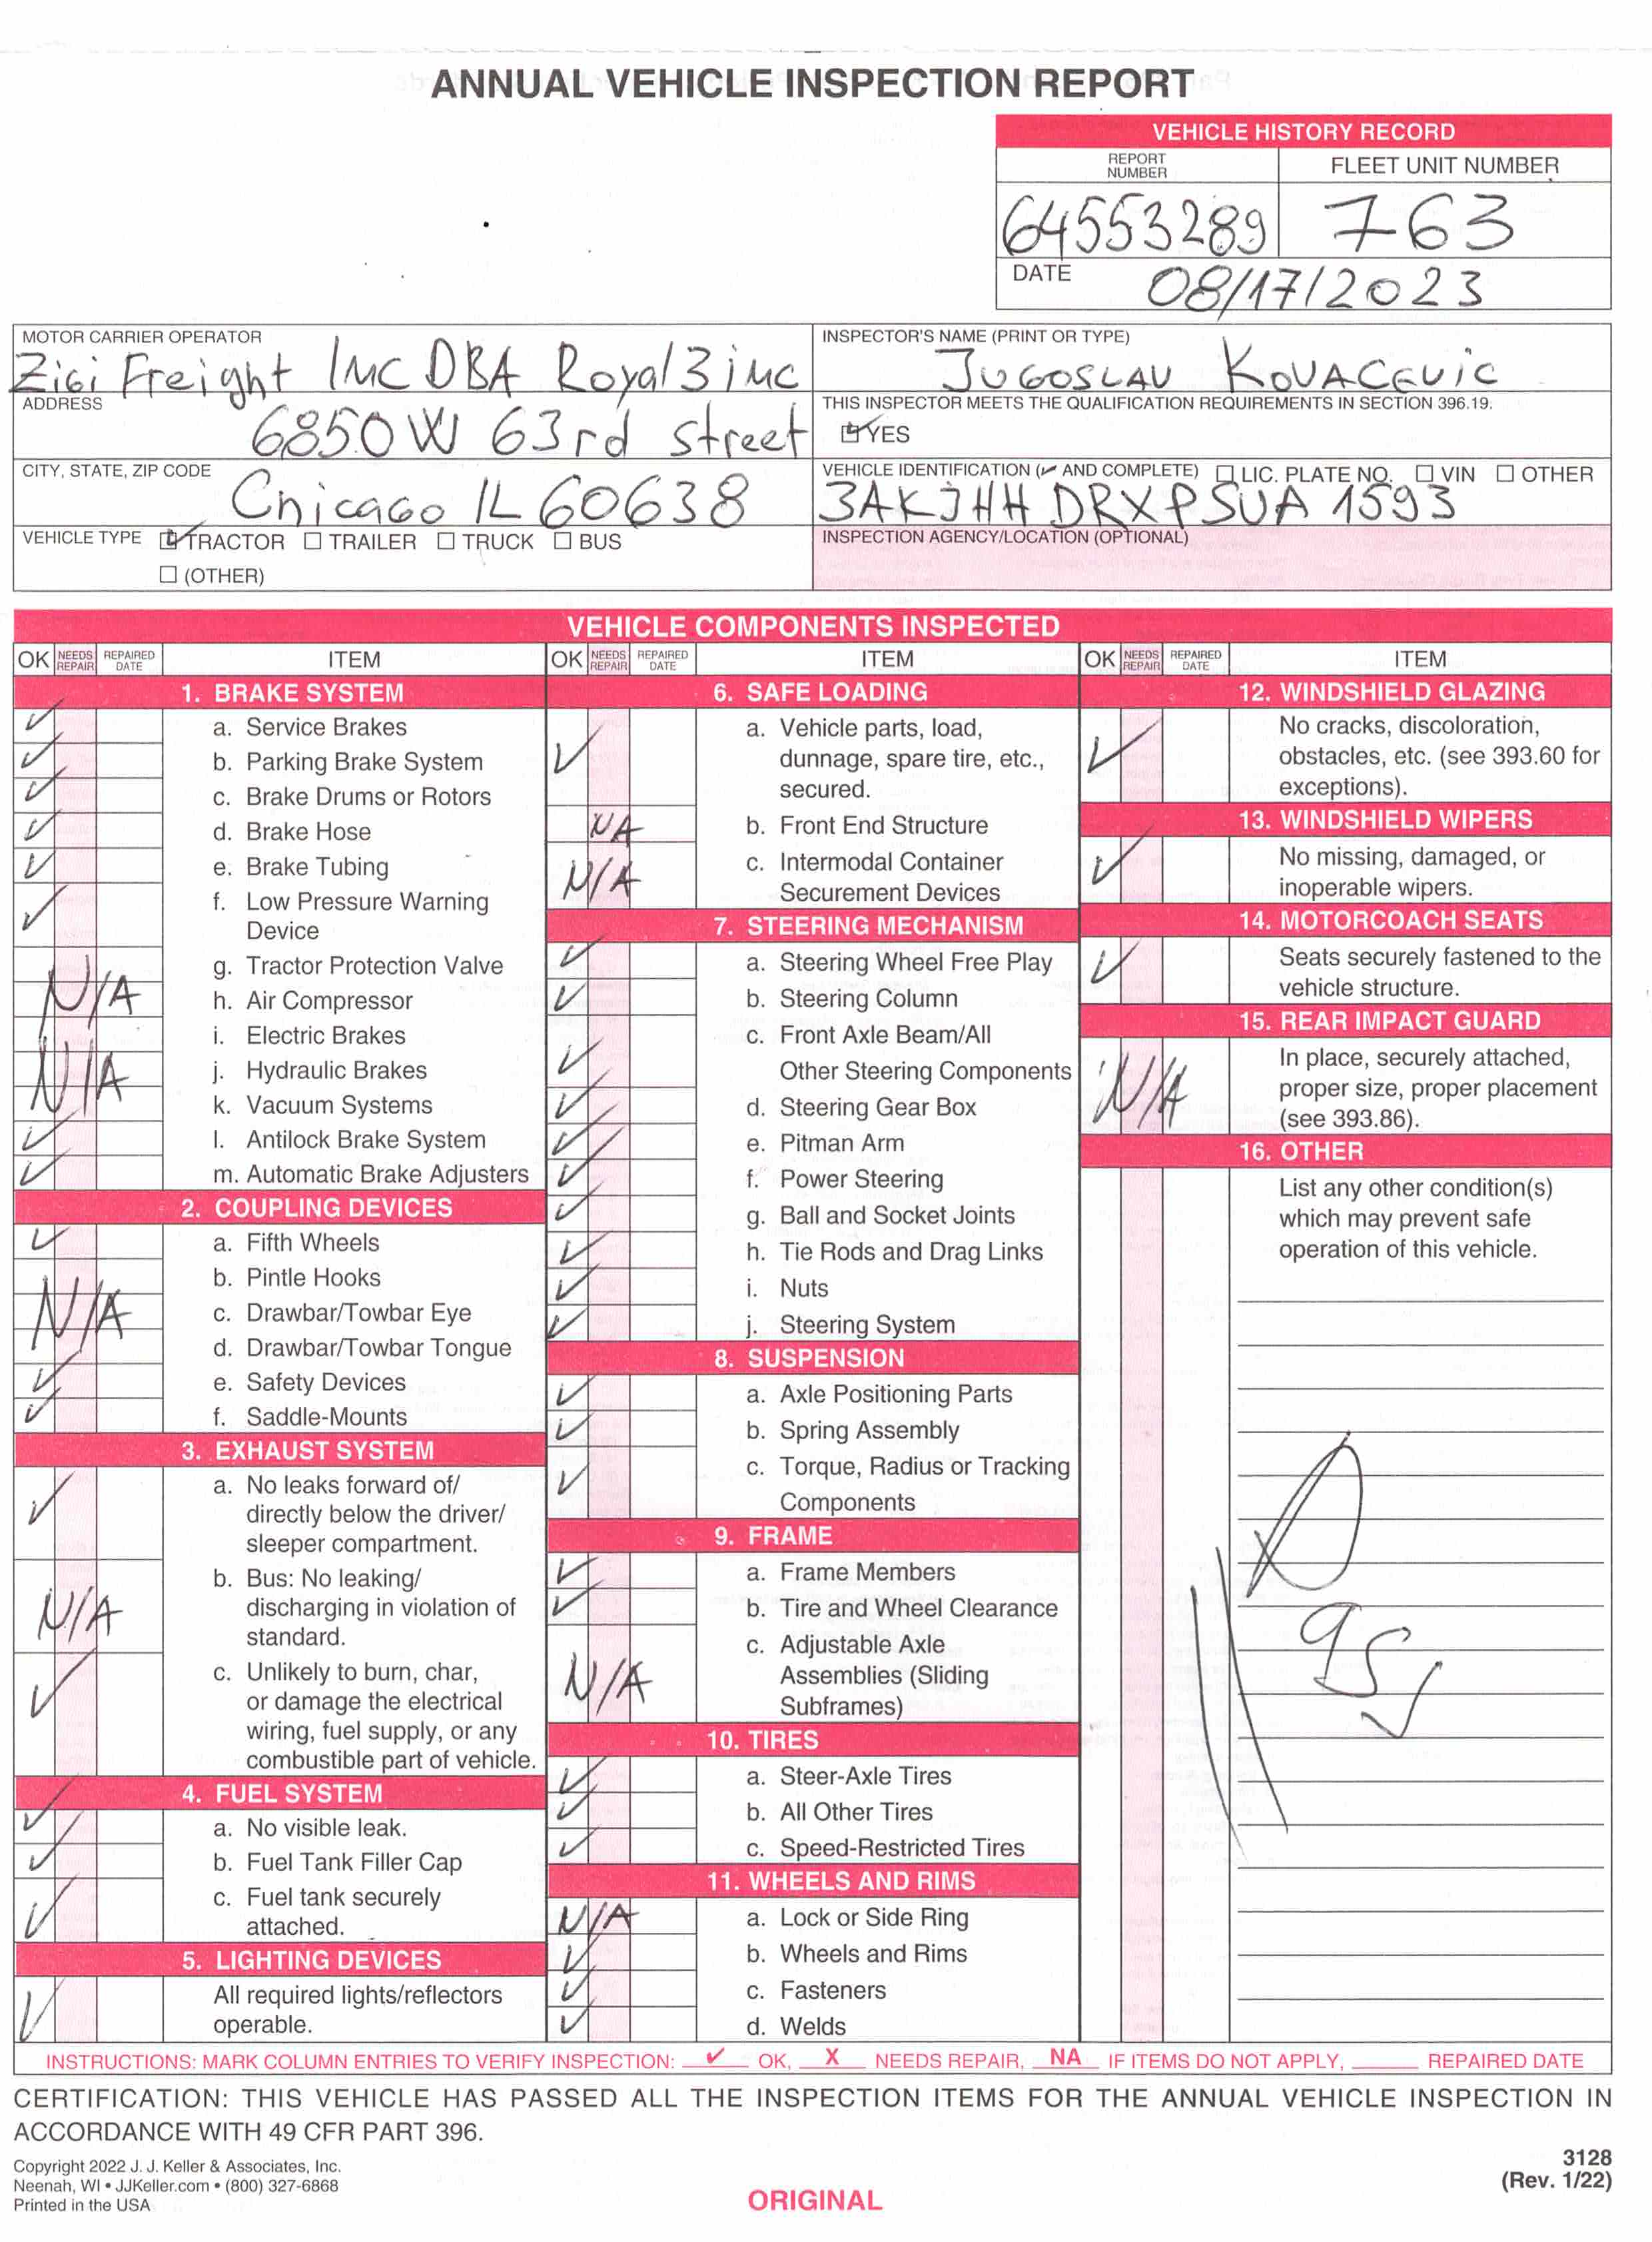 ANNUAL VEHICLE INSPECTION REPORT
VEHICLE HISTORY RECORD
REPORT NUMBER
FLEET UNIT NUMBER
64553289
763
DATE 08/17/2023
MOTOR CARRIER OPERATOR
Zigi Freight Inc DBA Royal3 inc
INSPECTOR'S NAME (PRINT OR TYPE)
JUGOSLAV KOVACEVIC
ADDRESS
6850 W 63rd street
THIS INSPECTOR MEETS THE QUALIFICATION REQUIREMENTS IN SECTION 396.19.
☑ YES
CITY, STATE, ZIP CODE
Chicago IL 60638
VEHICLE IDENTIFICATION (✓ AND COMPLETE) ☐ LIC. PLATE NO. ☐ VIN ☐ OTHER
3AKJHHDRXPSUA1593
VEHICLE TYPE ☑ TRACTOR ☐ TRAILER ☐ TRUCK ☐ BUS
☐ (OTHER)
INSPECTION AGENCY/LOCATION (OPTIONAL)
VEHICLE COMPONENTS INSPECTED
OK NEEDS REPAIR REPAIRED DATE ITEM
1. BRAKE SYSTEM
✓ a. Service Brakes
✓ b. Parking Brake System
✓ c. Brake Drums or Rotors
✓ d. Brake Hose
✓ e. Brake Tubing
✓ f. Low Pressure Warning
Device
g. Tractor Protection Valve
N/A h. Air Compressor
i. Electric Brakes
N/A j. Hydraulic Brakes
k. Vacuum Systems
✓ l. Antilock Brake System
✓ m. Automatic Brake Adjusters
2. COUPLING DEVICES
✓ a. Fifth Wheels
b. Pintle Hooks
N/A c. Drawbar/Towbar Eye
d. Drawbar/Towbar Tongue
✓ e. Safety Devices
✓ f. Saddle-Mounts
3. EXHAUST SYSTEM
✓ a. No leaks forward of/
directly below the driver/
sleeper compartment.
N/A b. Bus: No leaking/
discharging in violation of
standard.
✓ c. Unlikely to burn, char,
or damage the electrical
wiring, fuel supply, or any
combustible part of vehicle.
4. FUEL SYSTEM
✓ a. No visible leak.
✓ b. Fuel Tank Filler Cap
✓ c. Fuel tank securely
attached.
5. LIGHTING DEVICES
✓ All required lights/reflectors
operable.
OK NEEDS REPAIR REPAIRED DATE ITEM
6. SAFE LOADING
✓ a. Vehicle parts, load,
dunnage, spare tire, etc.,
secured.
NA b. Front End Structure
N/A c. Intermodal Container
Securement Devices
7. STEERING MECHANISM
✓ a. Steering Wheel Free Play
✓ b. Steering Column
✓ c. Front Axle Beam/All
Other Steering Components
✓ d. Steering Gear Box
✓ e. Pitman Arm
✓ f. Power Steering
✓ g. Ball and Socket Joints
✓ h. Tie Rods and Drag Links
✓ i. Nuts
✓ j. Steering System
8. SUSPENSION
✓ a. Axle Positioning Parts
✓ b. Spring Assembly
✓ c. Torque, Radius or Tracking
Components
9. FRAME
✓ a. Frame Members
✓ b. Tire and Wheel Clearance
N/A c. Adjustable Axle
Assemblies (Sliding
Subframes)
10. TIRES
✓ a. Steer-Axle Tires
✓ b. All Other Tires
✓ c. Speed-Restricted Tires
11. WHEELS AND RIMS
N/A a. Lock or Side Ring
✓ b. Wheels and Rims
✓ c. Fasteners
✓ d. Welds
OK NEEDS REPAIR REPAIRED DATE ITEM
12. WINDSHIELD GLAZING
✓ No cracks, discoloration,
obstacles, etc. (see 393.60 for
exceptions).
13. WINDSHIELD WIPERS
✓ No missing, damaged, or
inoperable wipers.
14. MOTORCOACH SEATS
✓ Seats securely fastened to the
vehicle structure.
15. REAR IMPACT GUARD
N/A In place, securely attached,
proper size, proper placement
(see 393.86).
16. OTHER
List any other condition(s)
which may prevent safe
operation of this vehicle.
INSTRUCTIONS: MARK COLUMN ENTRIES TO VERIFY INSPECTION: ✓ OK, X NEEDS REPAIR, NA IF ITEMS DO NOT APPLY, ____ REPAIRED DATE
CERTIFICATION: THIS VEHICLE HAS PASSED ALL THE INSPECTION ITEMS FOR THE ANNUAL VEHICLE INSPECTION IN
ACCORDANCE WITH 49 CFR PART 396.
Copyright 2022 J. J. Keller & Associates, Inc.
Neenah, WI • JJKeller.com • (800) 327-6868
Printed in the USA
ORIGINAL
3128
(Rev. 1/22)